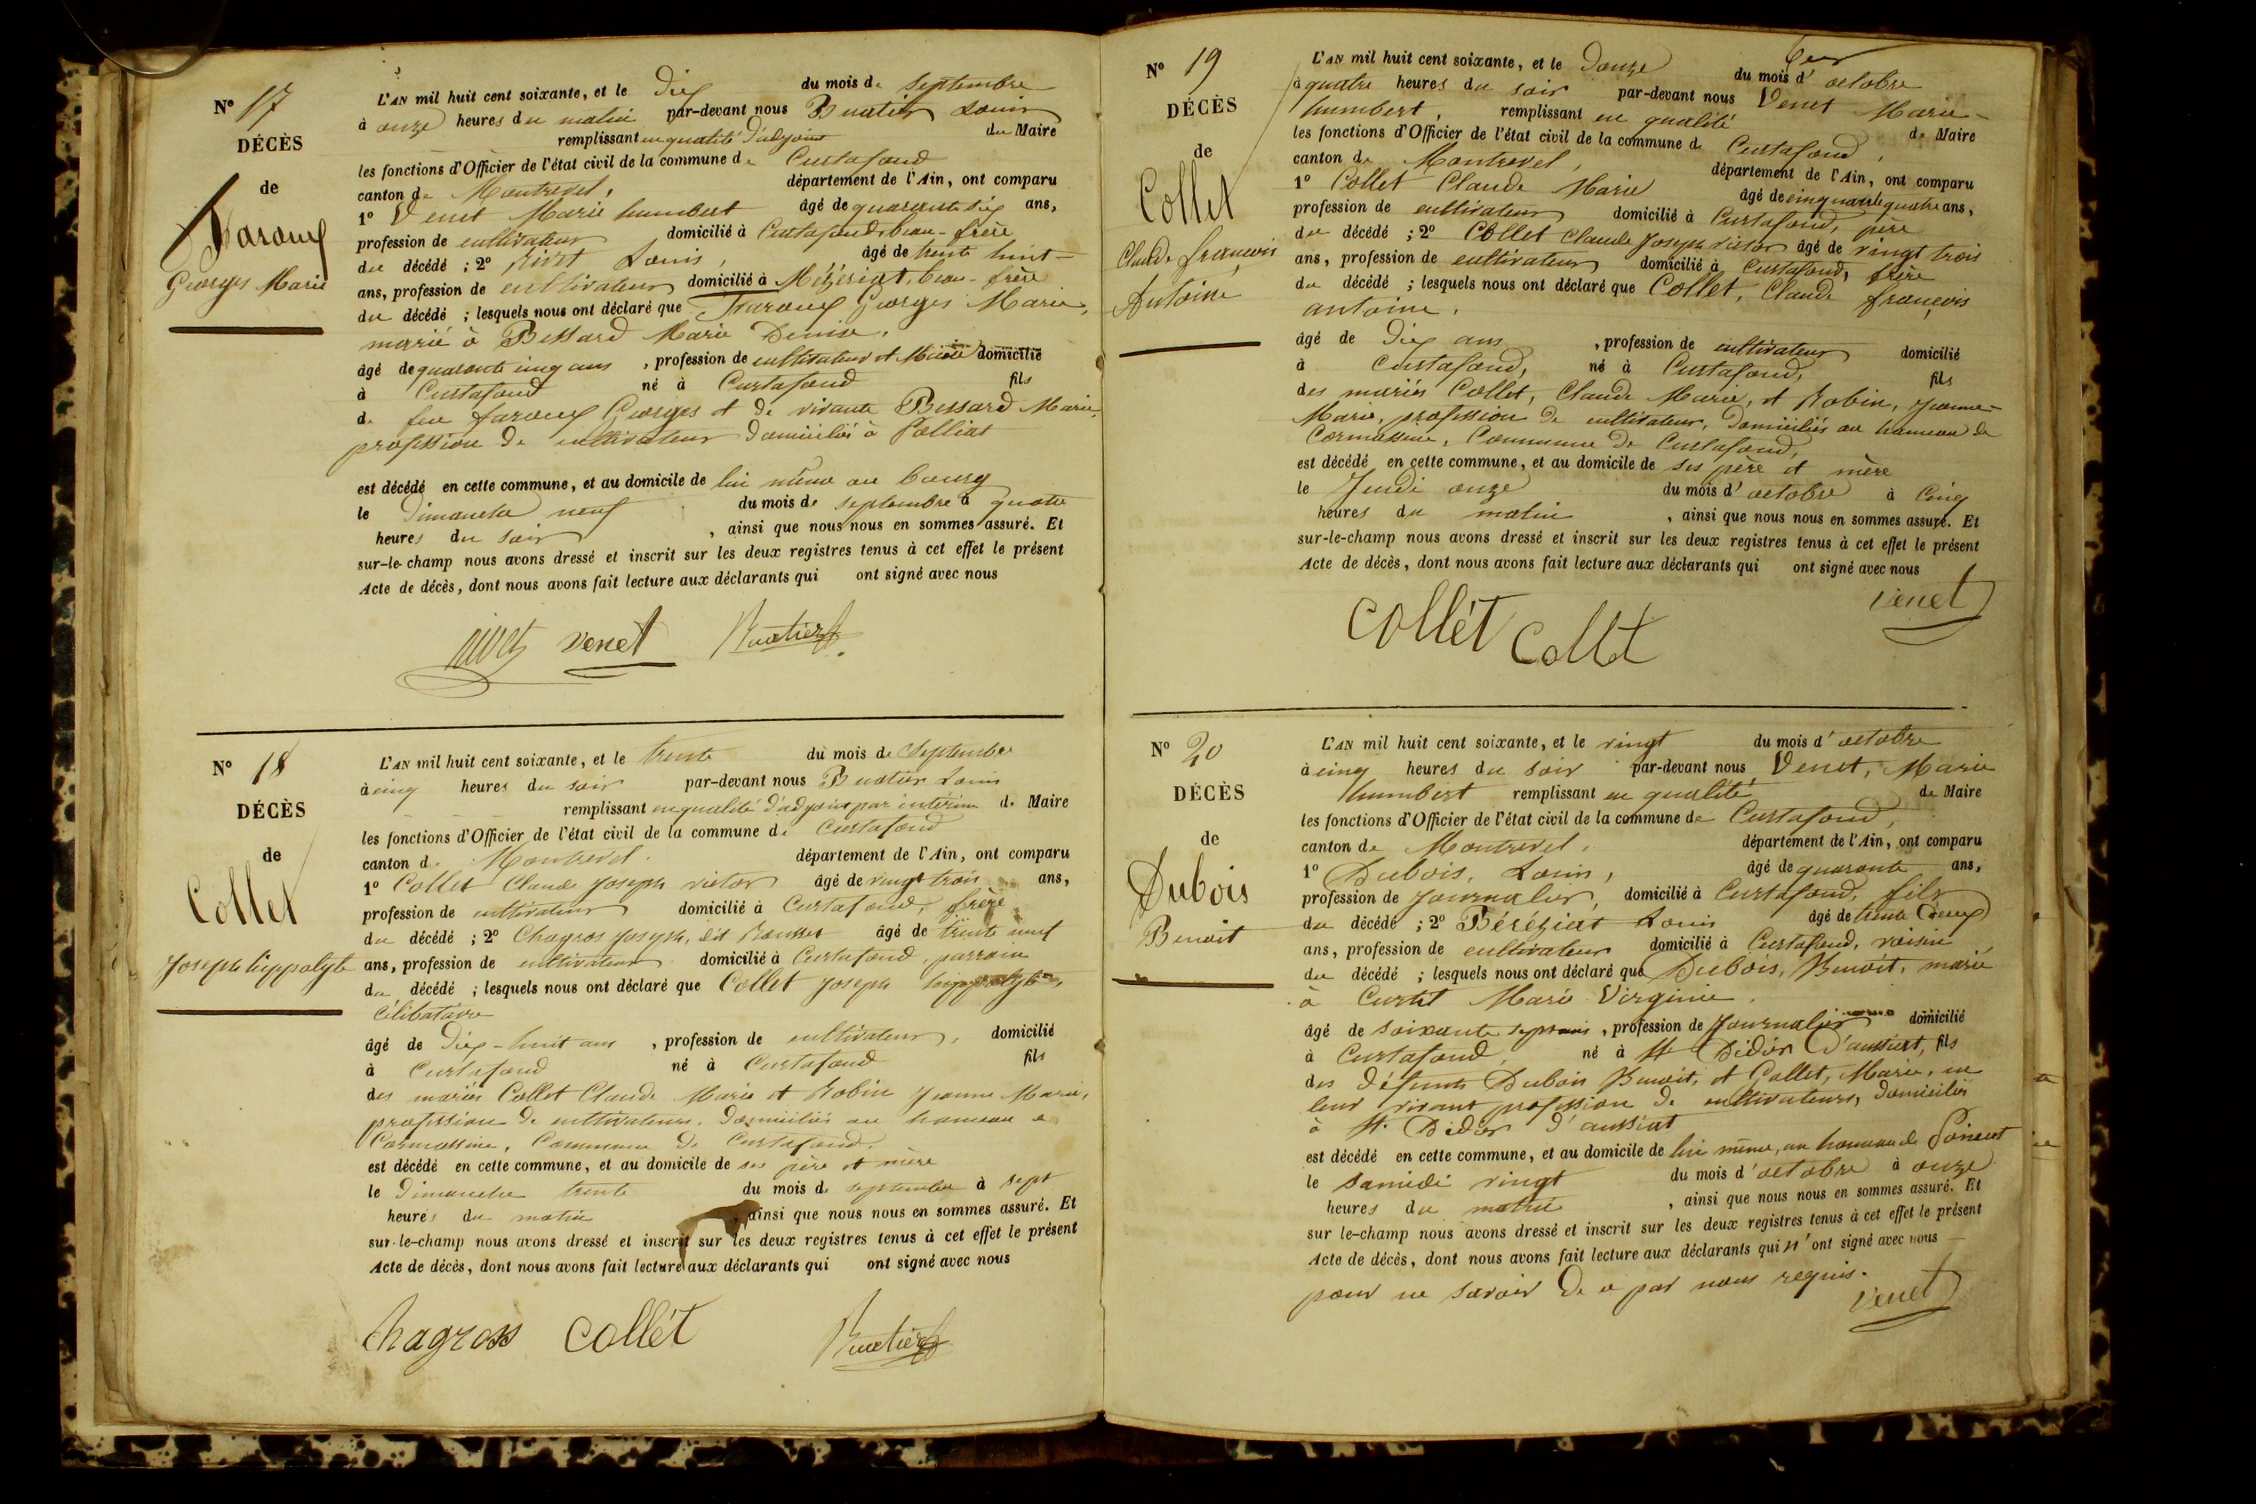 N° 17
DÉCÈS
de
Faroux
Georges Marie
L'AN mil huit cent soixante, et le Dix du mois de Septembre
à onze heures du matin par-devant nous Buatier Louis
remplissant en qualité d'adjoint du Maire
les fonctions d'Officier de l'état civil de la commune de Curtafond
canton de Montrevel, département de l'Ain, ont comparu
1° Venet Marie humbert âgé de quarante six ans,
profession de cultivateur domicilié à Curtafond, beau-frère
du décédé ; 2° Rivet Louis, âgé de trente huit
ans, profession de cultivateur domicilié à Mézériat, beau-frère
du décédé ; lesquels nous ont déclaré que Faroux Georges Marie,
marié à Bessard Marie Denise,
âgé de quarante cinq ans, profession de cultivateur et domicilié
à Curtafond né à Curtafond fils
de feu faroux Georges et de vivante Bessard Marie,
profession de cultivateur domiciliés à Polliat
est décédé en cette commune, et au domicile de lui même au bourg
le Dimanche neuf du mois de septembre à quatre
heures du soir, ainsi que nous nous en sommes assuré. Et
sur-le-champ nous avons dressé et inscrit sur les deux registres tenus à cet effet le présent
Acte de décès, dont nous avons fait lecture aux déclarants qui ont signé avec nous
rivet venet Buatier
N° 18
DÉCÈS
de
Collet
Joseph hippolyte
L'AN mil huit cent soixante, et le trente du mois de Septembre
à cinq heures du soir par-devant nous Buatier Louis
remplissant en qualité d'adjoint par intérim de Maire
les fonctions d'Officier de l'état civil de la commune de Curtafond
canton de Montrevel. département de l'Ain, ont comparu
1° Collet Claude Joseph victor âgé de vingt trois ans,
profession de cultivateur domicilié à Curtafond, frère
du décédé ; 2° Chagros Joseph, dit Rousset âgé de trente neuf
ans, profession de cultivateur domicilié à Curtafond, parrain
du décédé ; lesquels nous ont déclaré que Collet Joseph hippolyte,
célibataire
âgé de Dix-huit ans, profession de cultivateur, domicilié
à Curtafond né à Curtafond fils
des mariés Collet Claude Marie et Robin Jeanne Marie,
profession de cultivateurs, domiciliés au hameau de
Cormassine, Commune de Curtafond.
est décédé en cette commune, et au domicile de ses père et mère
le Dimanche trente du mois de septembre à sept
heures du matin, ainsi que nous nous en sommes assuré. Et
sur-le-champ nous avons dressé et inscrit sur les deux registres tenus à cet effet le présent
Acte de décès, dont nous avons fait lecture aux déclarants qui ont signé avec nous
Chagross Collét Buatier
N° 19
DÉCÈS
de
Collet
Claude françois
Antoine
L'AN mil huit cent soixante, et le Douze du mois d'octobre
à quatre heures du soir par-devant nous Venet Marie-
humbert, remplissant en qualité de Maire
les fonctions d'Officier de l'état civil de la commune de Curtafond,
canton de Montrevel, département de l'Ain, ont comparu
1° Collet Claude Marie âgé de cinquante quatre ans,
profession de cultivateur domicilié à Curtafond, père
du décédé ; 2° Collet Claude Joseph victor âgé de vingt trois
ans, profession de cultivateur domicilié à Curtafond, frère
du décédé ; lesquels nous ont déclaré que Collet, Claude françois
antoine,
âgé de Dix ans, profession de cultivateur domicilié
à Curtafond, né à Curtafond, fils
des mariés Collet, Claude Marie, et Robin, Jeanne-
Marie, profession de cultivateur, domiciliés au hameau de
Cormassine, Commune de Curtafond,
est décédé en cette commune, et au domicile de ses père et mère
le Jeudi onze du mois d'octobre à cinq
heures du matin, ainsi que nous nous en sommes assuré. Et
sur-le-champ nous avons dressé et inscrit sur les deux registres tenus à cet effet le présent
Acte de décès, dont nous avons fait lecture aux déclarants qui ont signé avec nous
venet
Collét Collet
N° 20
DÉCÈS
de
Dubois
Benoit
L'AN mil huit cent soixante, et le vingt du mois d'octobre
à cinq heures du soir par-devant nous Venet, Marie
humbert remplissant en qualité de Maire
les fonctions d'Officier de l'état civil de la commune de Curtafond,
canton de Montrevel, département de l'Ain, ont comparu
1° Dubois, Louis, âgé de quarante ans,
profession de Journalier, domicilié à Curtafond, fils
du décédé ; 2° Béréziat Louis âgé de trente Deux
ans, profession de cultivateur domicilié à Curtafond, voisin
du décédé ; lesquels nous ont déclaré que Dubois, Benoit, marié
à Curtil Marie Virginie.
âgé de soixante sept ans, profession de Journalier domicilié
à Curtafond, né à St Didier D'aussiat, fils
des défunts Dubois Benoit, et Collet, Marie, en
leur vivant profession de cultivateurs, domiciliés
à St Didier d'aussiat
est décédé en cette commune, et au domicile de lui même, au hameau de
le samedi vingt du mois d'octobre à onze
heures du matin, ainsi que nous nous en sommes assuré. Et
sur le-champ nous avons dressé et inscrit sur les deux registres tenus à cet effet le présent
Acte de décès, dont nous avons fait lecture aux déclarants qui n'ont signé avec nous
pour ne savoir de ce par nous requis.
venet